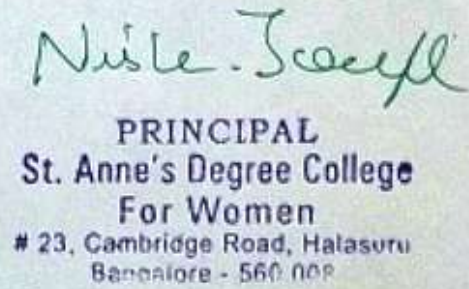 PRINCIPAL
St. Anne's Degree College
For Women
# 23, Cambridge Road, Halasuru
Bangalore - 560 008